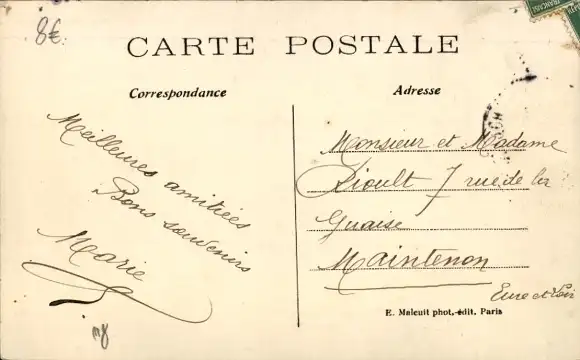 8€
CARTE POSTALE
Correspondance
Meilleures amitiées
Bons souvenirs
Marie
Adresse
Monsieur et Madame
Pioult 7 rue de la
Guaise
Maintenon
Eure et Loir
E. Maleuit phot.-édit. Paris